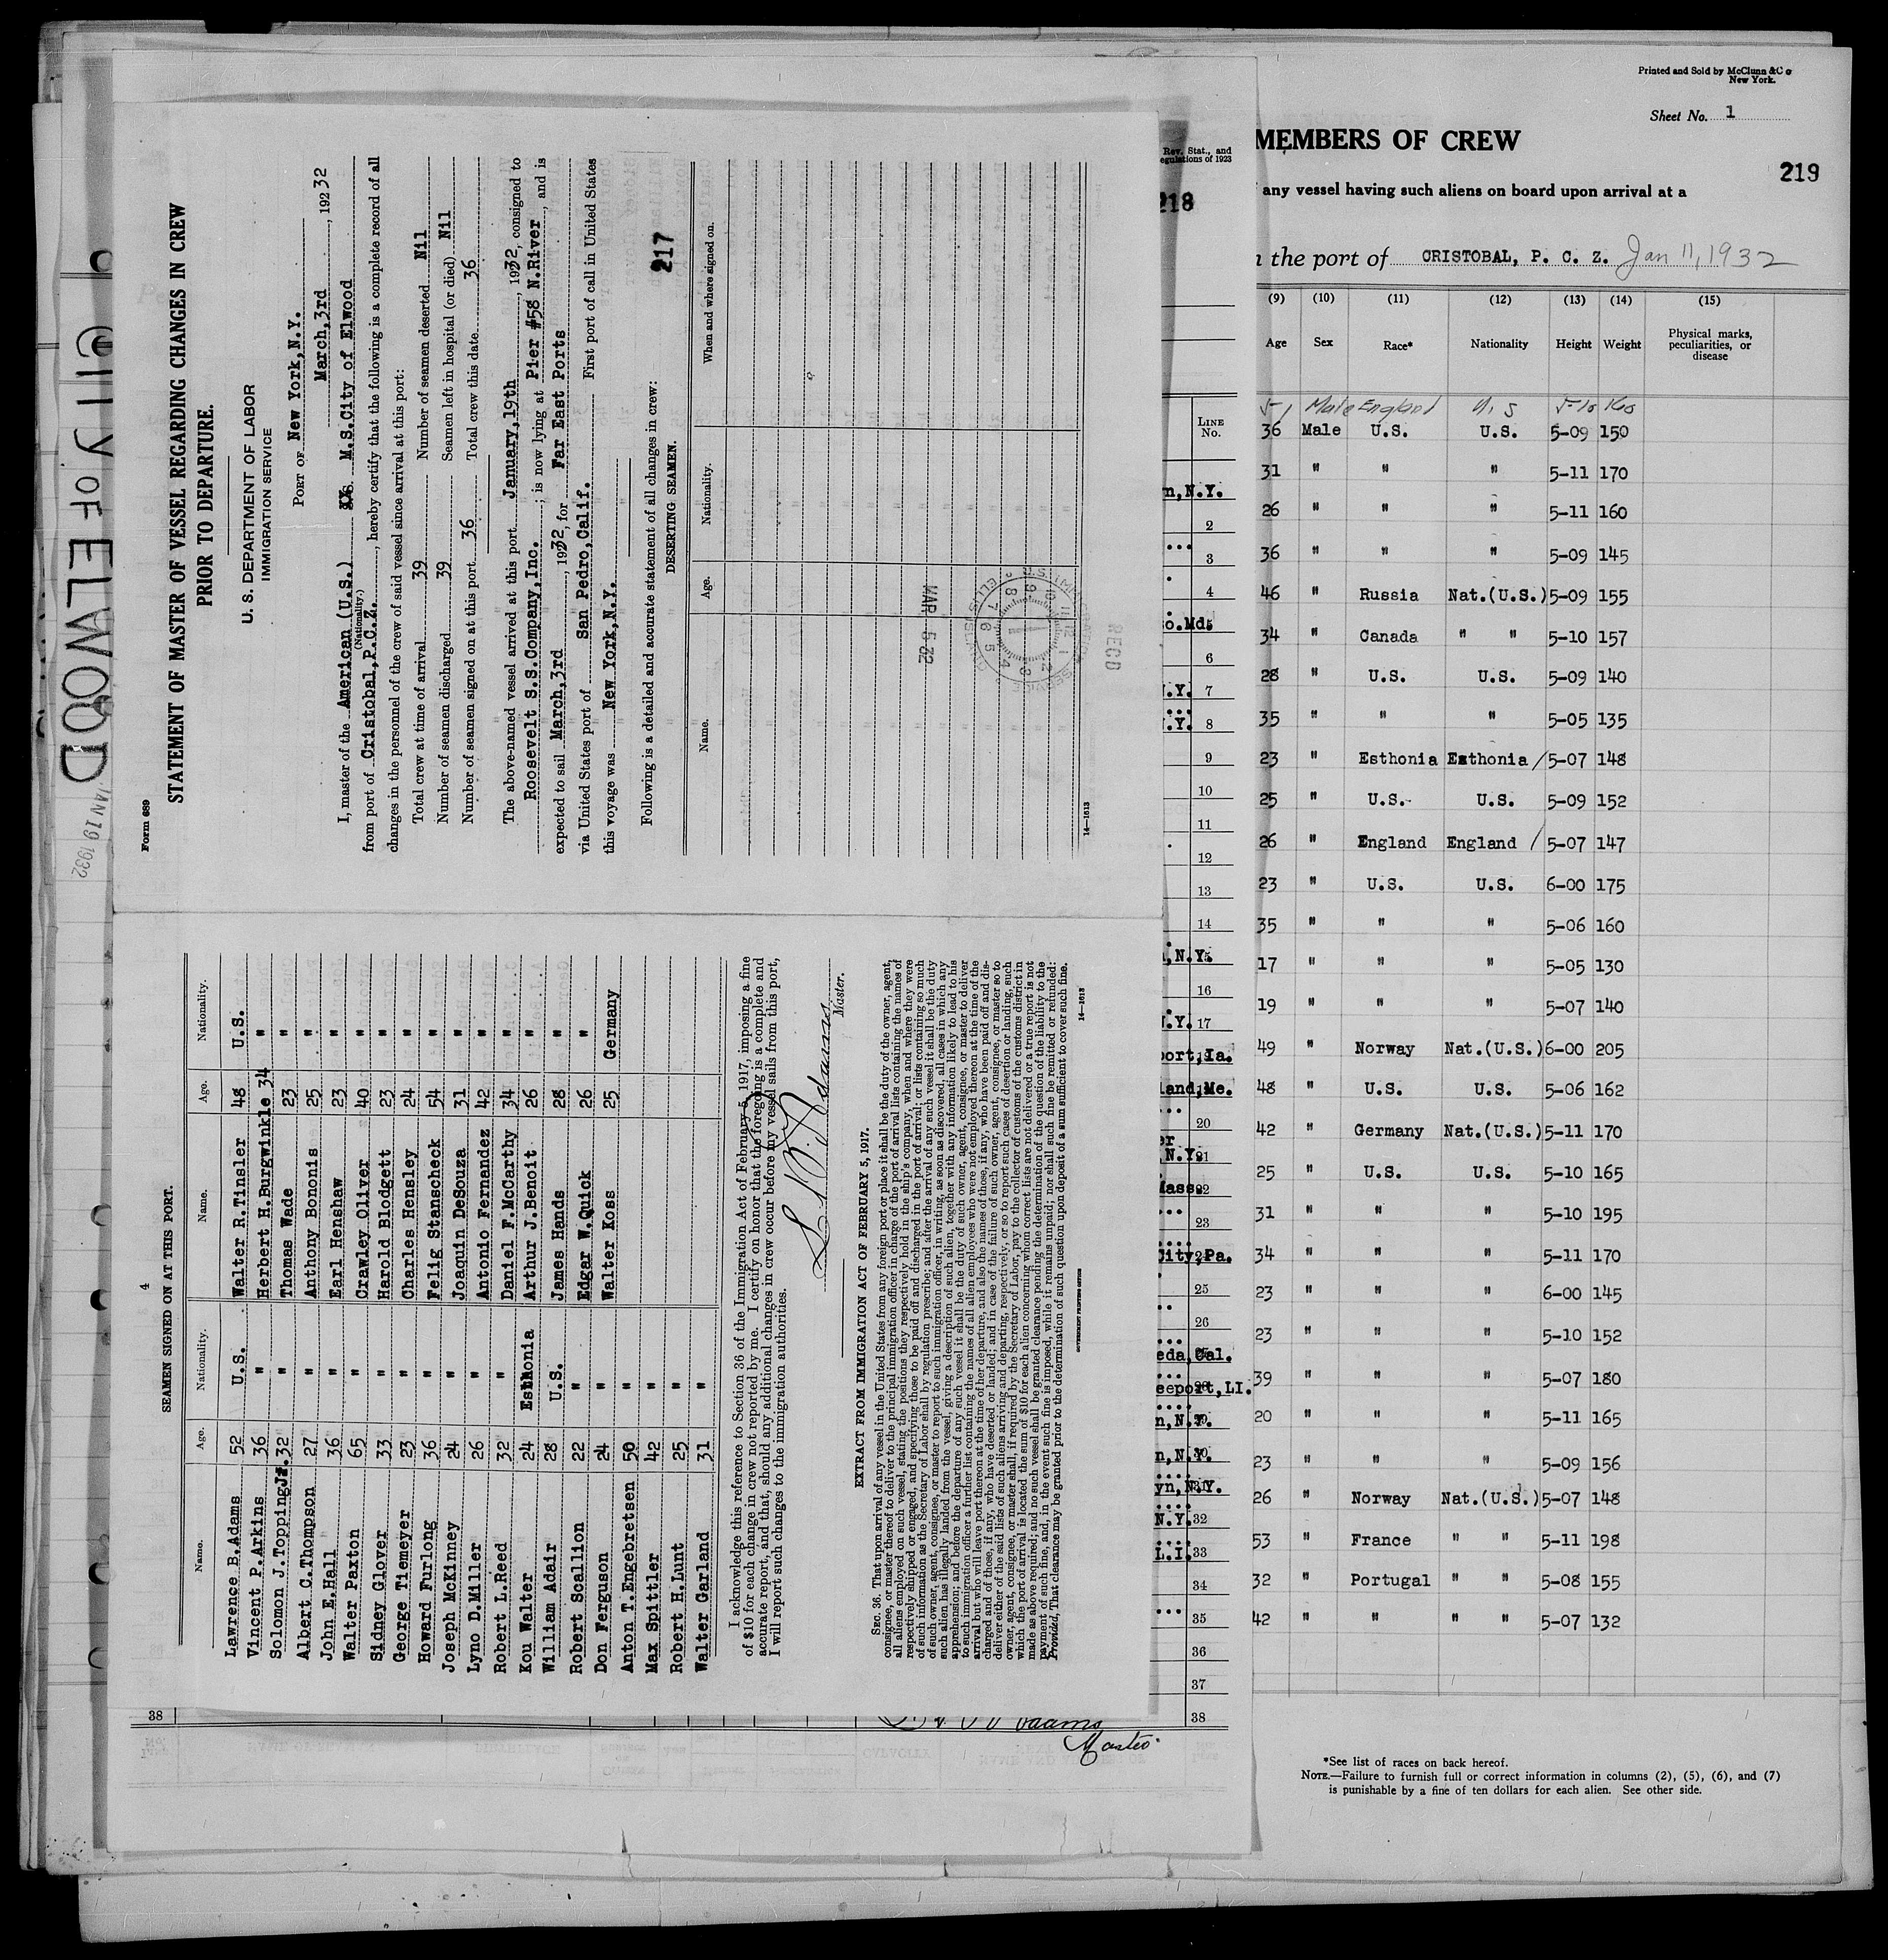 City of ELWOOD
JAN 19 1932
Form 689
STATEMENT OF MASTER OF VESSEL REGARDING CHANGES IN CREW
PRIOR TO DEPARTURE.
U. S. DEPARTMENT OF LABOR
IMMIGRATION SERVICE
PORT OF New York, N.Y.
March, 3rd, 1932
I, master of the American (U.S.) S.S. M.S. City of Elwood
(Nationality.)
from port of Cristobal, P.C.Z., hereby certify that the following is a complete record of all
changes in the personnel of the crew of said vessel since arrival at this port:
Total crew at time of arrival 39 Number of seamen deserted Nil
Number of seamen discharged 39 Seamen left in hospital (or died) Nil
Number of seamen signed on at this port 36 Total crew this date 36
The above-named vessel arrived at this port January, 19th, 1932, consigned to
Roosevelt S.S. Company, Inc.; is now lying at Pier #58 N. River, and is
expected to sail March, 3rd, 1932, for Far East Ports
via United States port of San Pedro, Calif. First port of call in United States
this voyage was New York, N.Y.
217
Following is a detailed and accurate statement of all changes in crew:
DESERTING SEAMEN.
Name. Age. Nationality. When and where signed on.
MAR 5 32
RECD
14—1613
4
SEAMEN SIGNED ON AT THIS PORT.
Name. Age. Nationality. Name. Age. Nationality.
Lawrence B. Adams 52 U.S. Walter R. Tinsler 48 U.S.
Vincent P. Arkins 36 " Herbert H. Burgwinkle 34 "
Solomon J. Topping Jr. 32 " Thomas Wade 23 "
Albert C. Thompson 27 " Anthony Bononis 25 "
John E. Hall 36 " Earl Henshaw 23 "
Walter Paxton 65 " Crawley Oliver 40 "
Sidney Glover 33 " Harold Blodgett 23 "
George Tiemeyer 23 " Charles Hensley 24 "
Howard Furlong 36 " Felig Stanscheck 54 "
Joseph McKinney 24 " Joaquin DeSouza 31 "
Lyno D. Miller 26 " Antonio Fernendez 42 "
Robert L. Reed 32 " Daniel F. McCarthy 34 "
Kou Walter 24 Esthonia Arthur J. Benoit 26 "
William Adair 28 U.S. James Hands 28 "
Robert Scallion 22 " Edgar W. Quick 26 "
Don Ferguson 24 " Walter Koss 25 Germany
Anton T. Engebretsen 50 "
Max Spittler 42 "
Robert H. Lunt 25 "
Walter Garland 31 "
I acknowledge this reference to Section 36 of the Immigration Act of February 5, 1917, imposing a fine
of $10 for each change in crew not reported by me. I certify on honor that the foregoing is a complete and
accurate report, and that, should any additional changes in crew occur before my vessel sails from this port,
I will report such changes to the immigration authorities.
Master.
EXTRACT FROM IMMIGRATION ACT OF FEBRUARY 5, 1917.
SEC. 36. That upon arrival of any vessel in the United States from any foreign port or place it shall be the duty of the owner, agent,
consignee, or master thereof to deliver to the principal immigration officer in charge of the port of arrival lists containing the names of
all aliens employed on such vessel, stating the positions they respectively hold in the ship's company, when and where they were
respectively shipped or engaged, and specifying those to be paid off and discharged in the port of arrival; or lists containing so much
of such information as the Secretary of Labor shall by regulation prescribe; and after the arrival of any such vessel it shall be the duty
of such owner, agent, consignee, or master to report to such immigration officer, in writing, as soon as discovered, all cases in which any
such alien has illegally landed from the vessel, giving a description of such alien, together with any information likely to lead to his
apprehension; and before the departure of any such vessel it shall be the duty of such owner, agent, consignee, or master to deliver
to such immigration officer a further list containing the names of all alien employees who were not employed thereon at the time of the
arrival but who will leave port thereon at the time of her departure, and also the names of those, if any, who have been paid off and dis-
charged and of those, if any, who have deserted or landed; and in case of the failure of such owner, agent, consignee, or master so to
deliver either of the said lists of such aliens arriving and departing, respectively, or so to report such cases of desertion or landing, such
owner, agent, consignee, or master shall, if required by the Secretary of Labor, pay to the collector of customs of the customs district in
which the port of arrival is located the sum of $10 for each alien concerning whom correct lists are not delivered or a true report is not
made as above required; and no such vessel shall be granted clearance pending the determination of the question of the liability to the
payment of such fine, and, in the event such fine is imposed, while it remains unpaid; nor shall such fine be remitted or refunded:
Provided, That clearance may be granted prior to the determination of such question upon deposit of a sum sufficient to cover such fine.
14—1613
GOVERNMENT PRINTING OFFICE
38
Master
Rev. Stat., and
egulations of 1923
218
LINE
No.
n, N.Y.
2
3
4
o. Md.
6
7
N.Y.
8
9
10
11
12
13
14
N.Y.
16
17
port, Ia.
land, Me.
20
21
N.Y.
Mass.
22
23
City, Pa.
25
26
eda, Cal.
eeport, LI.
n, N.Y.
n, N.Y.
yn, N.Y.
N.Y. 32
L.I. 33
34
35
36
37
38
Printed and Sold by McClunn & Co
New York.
Sheet No. 1
MEMBERS OF CREW
219
any vessel having such aliens on board upon arrival at a
the port of CRISTOBAL, P. C. Z. Jan 11, 1932
(9) (10) (11) (12) (13) (14) (15)
Age Sex Race* Nationality Height Weight Physical marks, peculiarities, or disease
51 Male England U.S 5-10 160
36 Male U.S. U.S. 5-09 150
31 " " " 5-11 170
26 " " " 5-11 160
36 " " " 5-09 145
46 " Russia Nat.(U.S.) 5-09 155
34 " Canada " " 5-10 157
28 " U.S. U.S. 5-09 140
35 " " " 5-05 135
23 " Esthonia Esthonia / 5-07 148
25 " U.S. U.S. 5-09 152
26 " England England / 5-07 147
23 " U.S. U.S. 6-00 175
35 " " " 5-06 160
17 " " " 5-05 130
19 " " " 5-07 140
49 " Norway Nat.(U.S.) 6-00 205
48 " U.S. U.S. 5-06 162
42 " Germany Nat.(U.S.) 5-11 170
25 " U.S. U.S. 5-10 165
31 " " " 5-10 195
34 " " " 5-11 170
23 " " " 6-00 145
23 " " " 5-10 152
39 " " " 5-07 180
20 " " " 5-11 165
23 " " " 5-09 156
26 " Norway Nat.(U.S.) 5-07 148
53 " France " " 5-11 198
32 " Portugal " " 5-08 155
42 " " " " 5-07 132
*See list of races on back hereof.
NOTE.—Failure to furnish full or correct information in columns (2), (5), (6), and (7)
is punishable by a fine of ten dollars for each alien. See other side.